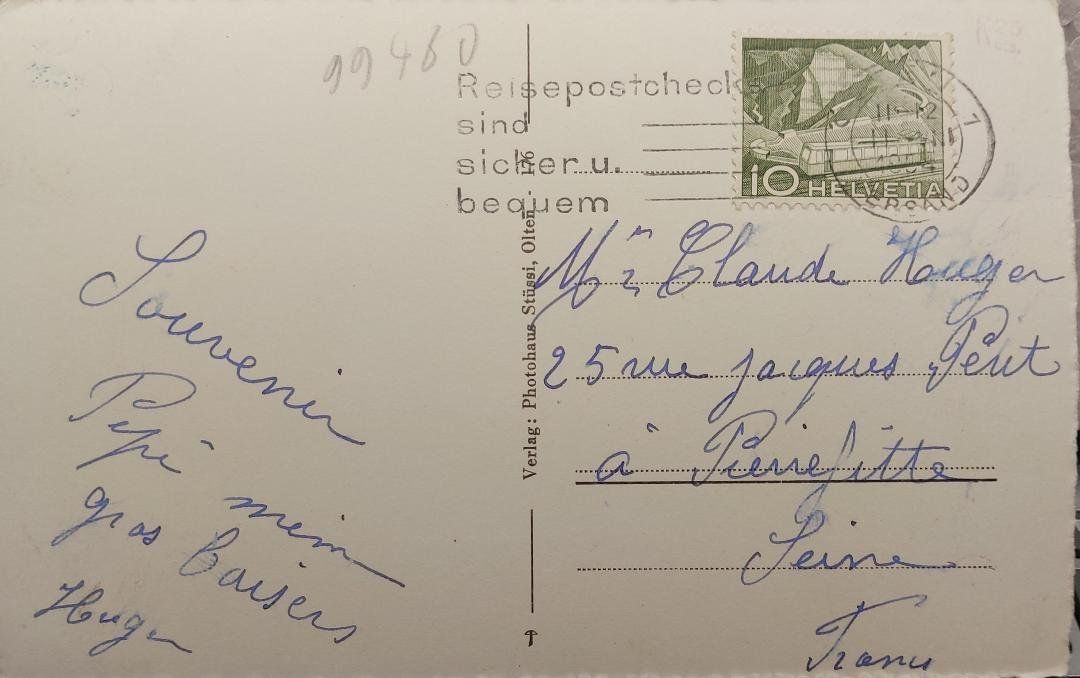 99460
Reisepostchecks
sind
sicher u.
bequem
11-12
10 HELVETIA
VERSAND
Verlag: Photohaus Stüssi, Olten. 176
Souvenir
Pépé mem
gros baisers
Huger
Mr Claude Huger
25 rue Jacques
à Pierrefitte
Seine
France